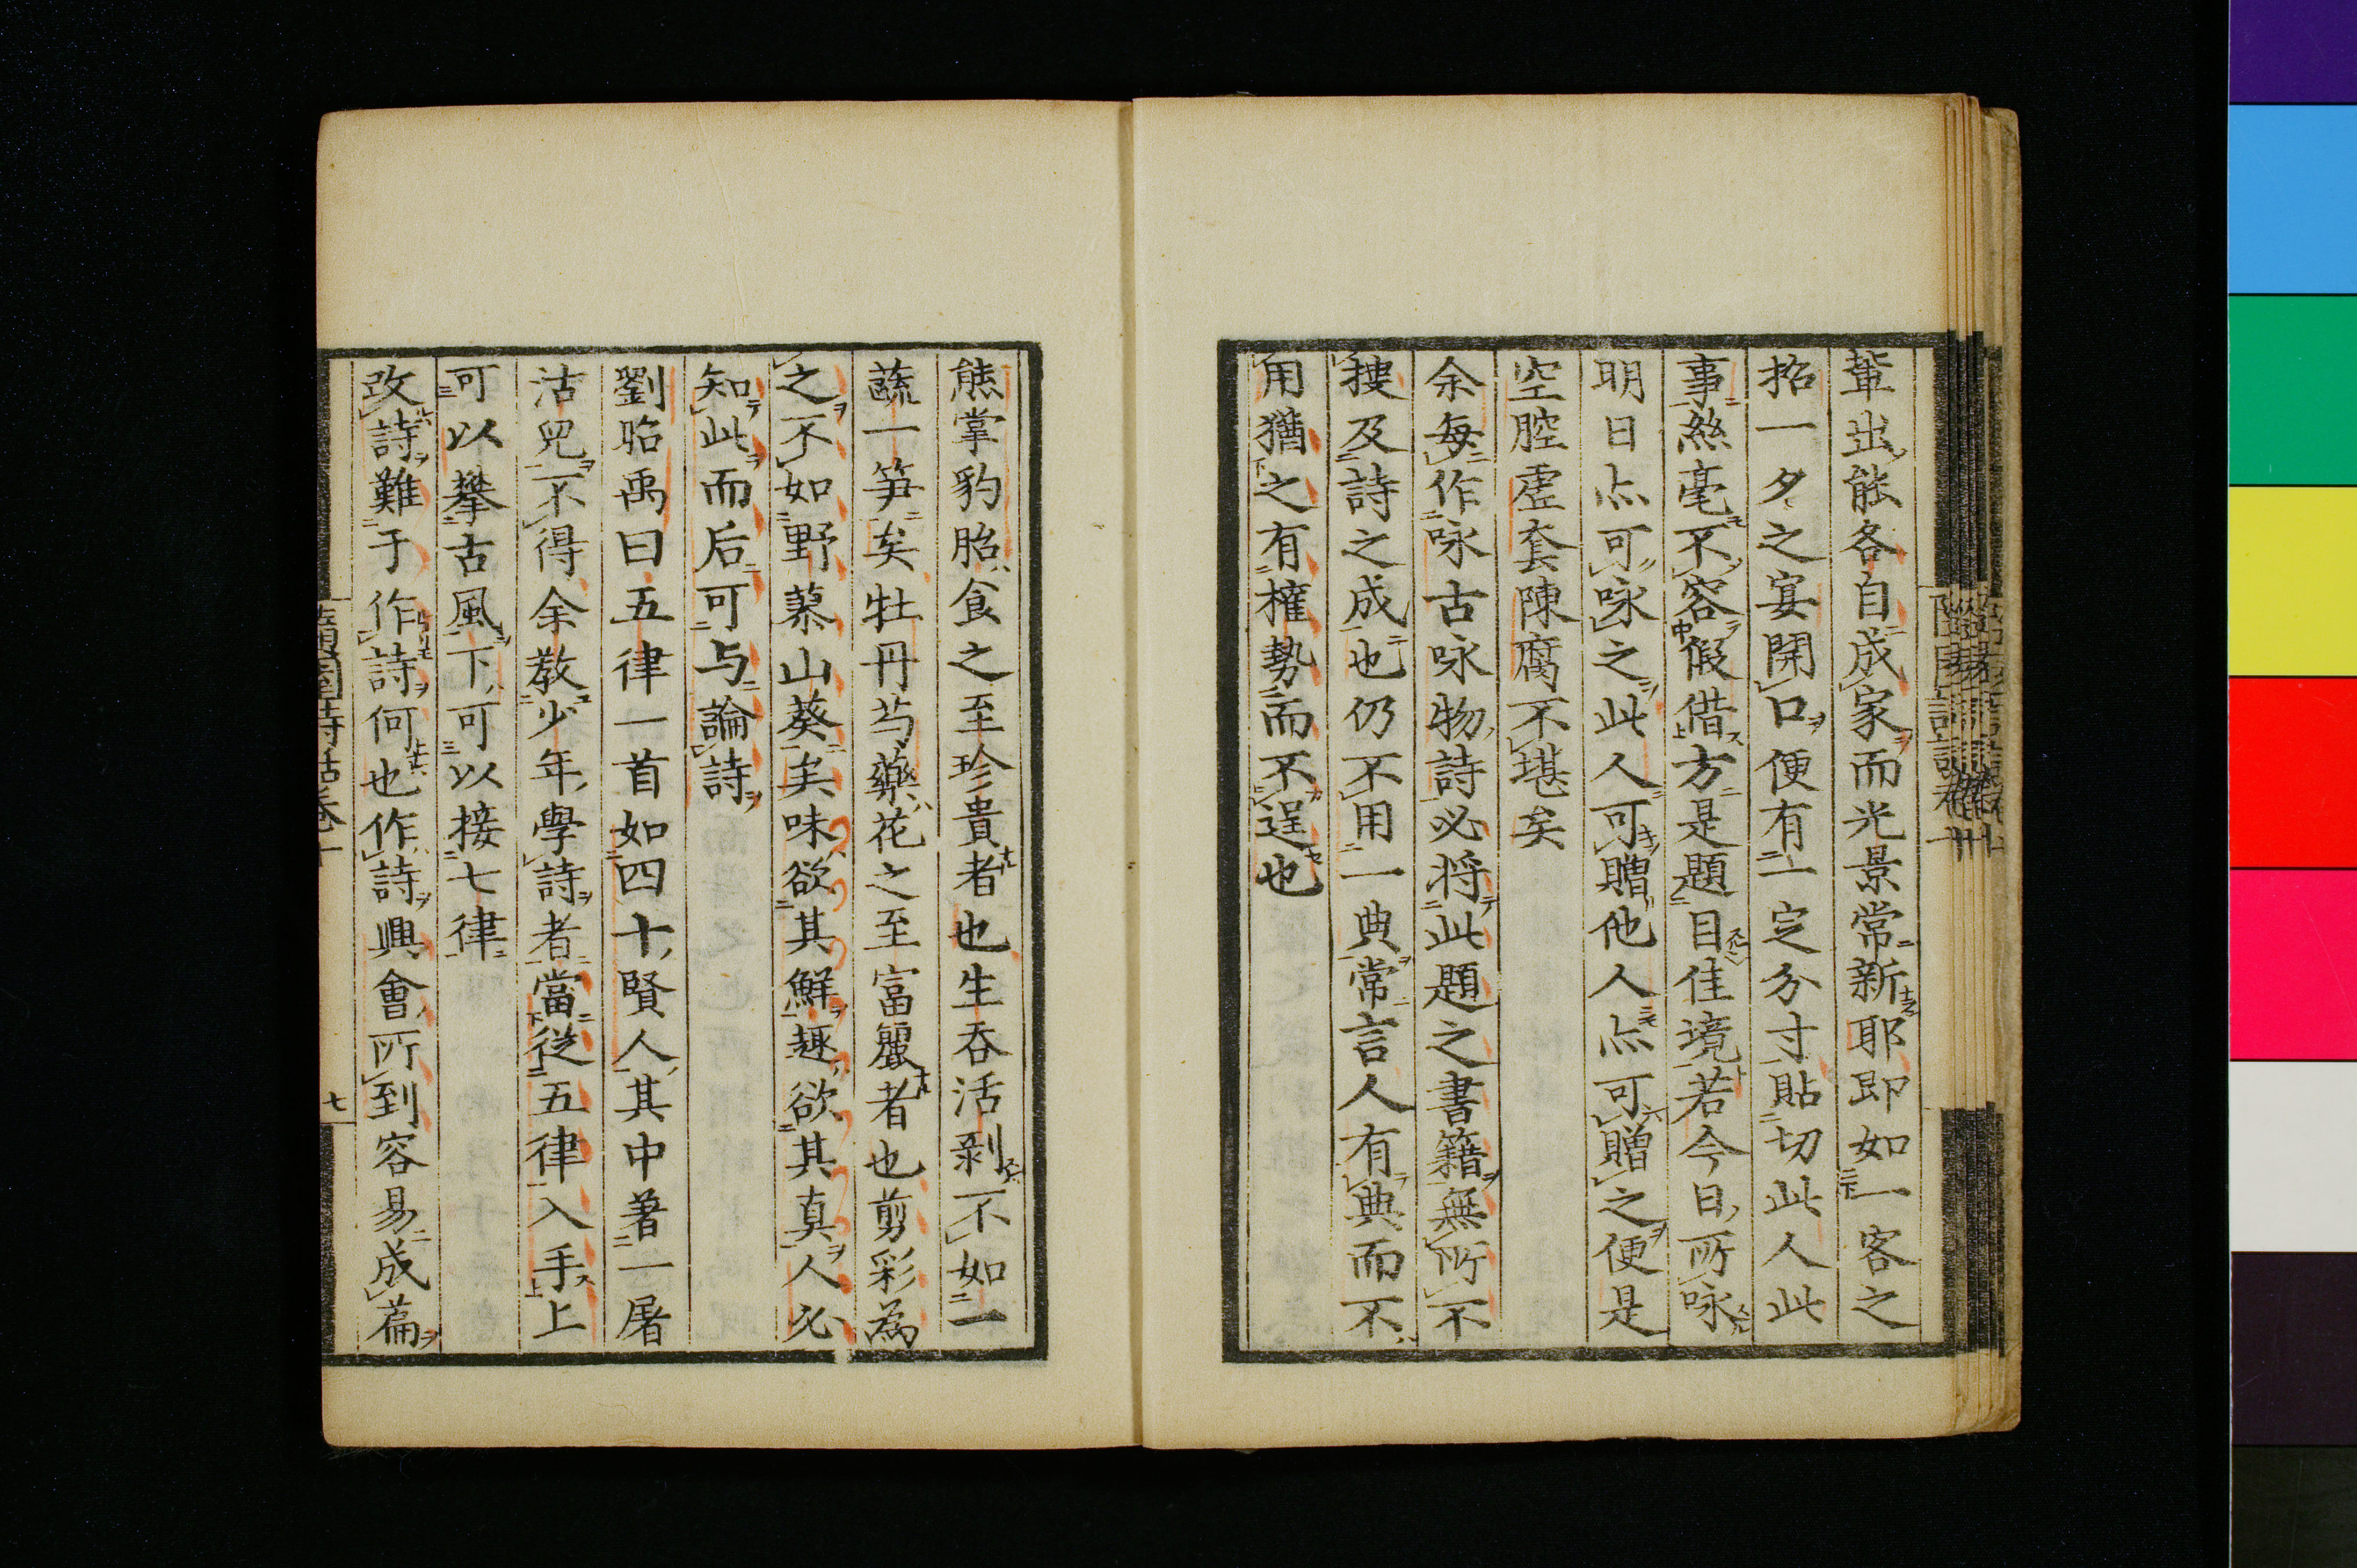 輩出能各自成家而光景常新耶即如一客之
招一夕之宴開口便有一定分寸貼切此人此
事絲毫不容假借方是題目佳境若今日所咏
明日亦可咏之此人可贈他人亦可贈之便是
空腔虚套陳腐不堪矣
余每作咏古咏物詩必将此題之書籍無所不
搜及詩之成也仍不用一典常言人有典而不
用猶之有權勢而不逞也
熊掌豹胎食之至珍貴者也生呑活剥不如一
蔬一笋矣牡丹芍藥花之至富麗者也剪彩為
之不如野蓼山葵矣味欲其鮮趣欲其真人必
知此而后可与論詩
劉昭禹曰五律一首如四十賢人其中著一屠
沽兒不得余教少年學詩者當從五律入手上
可以攀古風下可以接七律
改詩難于作詩何也作詩興會所到容易成篇
隨園詩話巻十
七